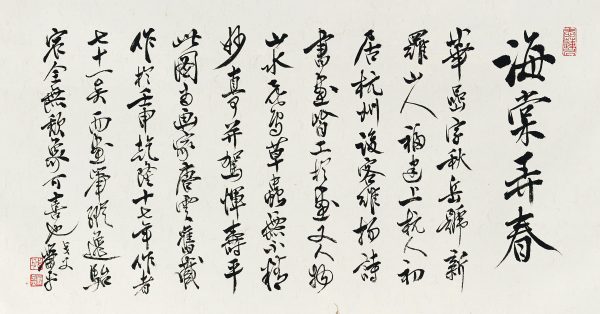 海棠弄春
華喦字秋岳號新
羅山人福建上杭人初
居杭州後客維揚詩
書畫皆工於畫又人物
山水花鳥草蟲無不精
妙真可并駕惲壽平
此圖為畫家唐雲舊藏
作於壬申乾隆十七年作者
七十一矣而畫筆縱逸駘
宕全無象可喜也蕭平